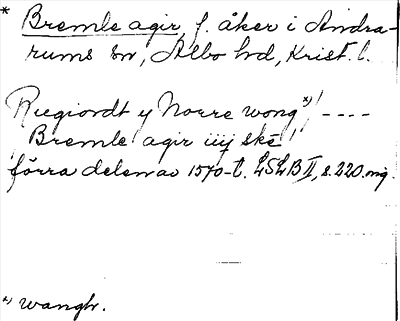 * Bremle agir, f. åker i Andra-
rums sn, Albo hd, Krist. l.
Rugiordt y Norre wong *)! ----
Bremle agir iiij skē !
förra delen av 1570-t. LSLB II, s. 220. mg.
*) wangh.